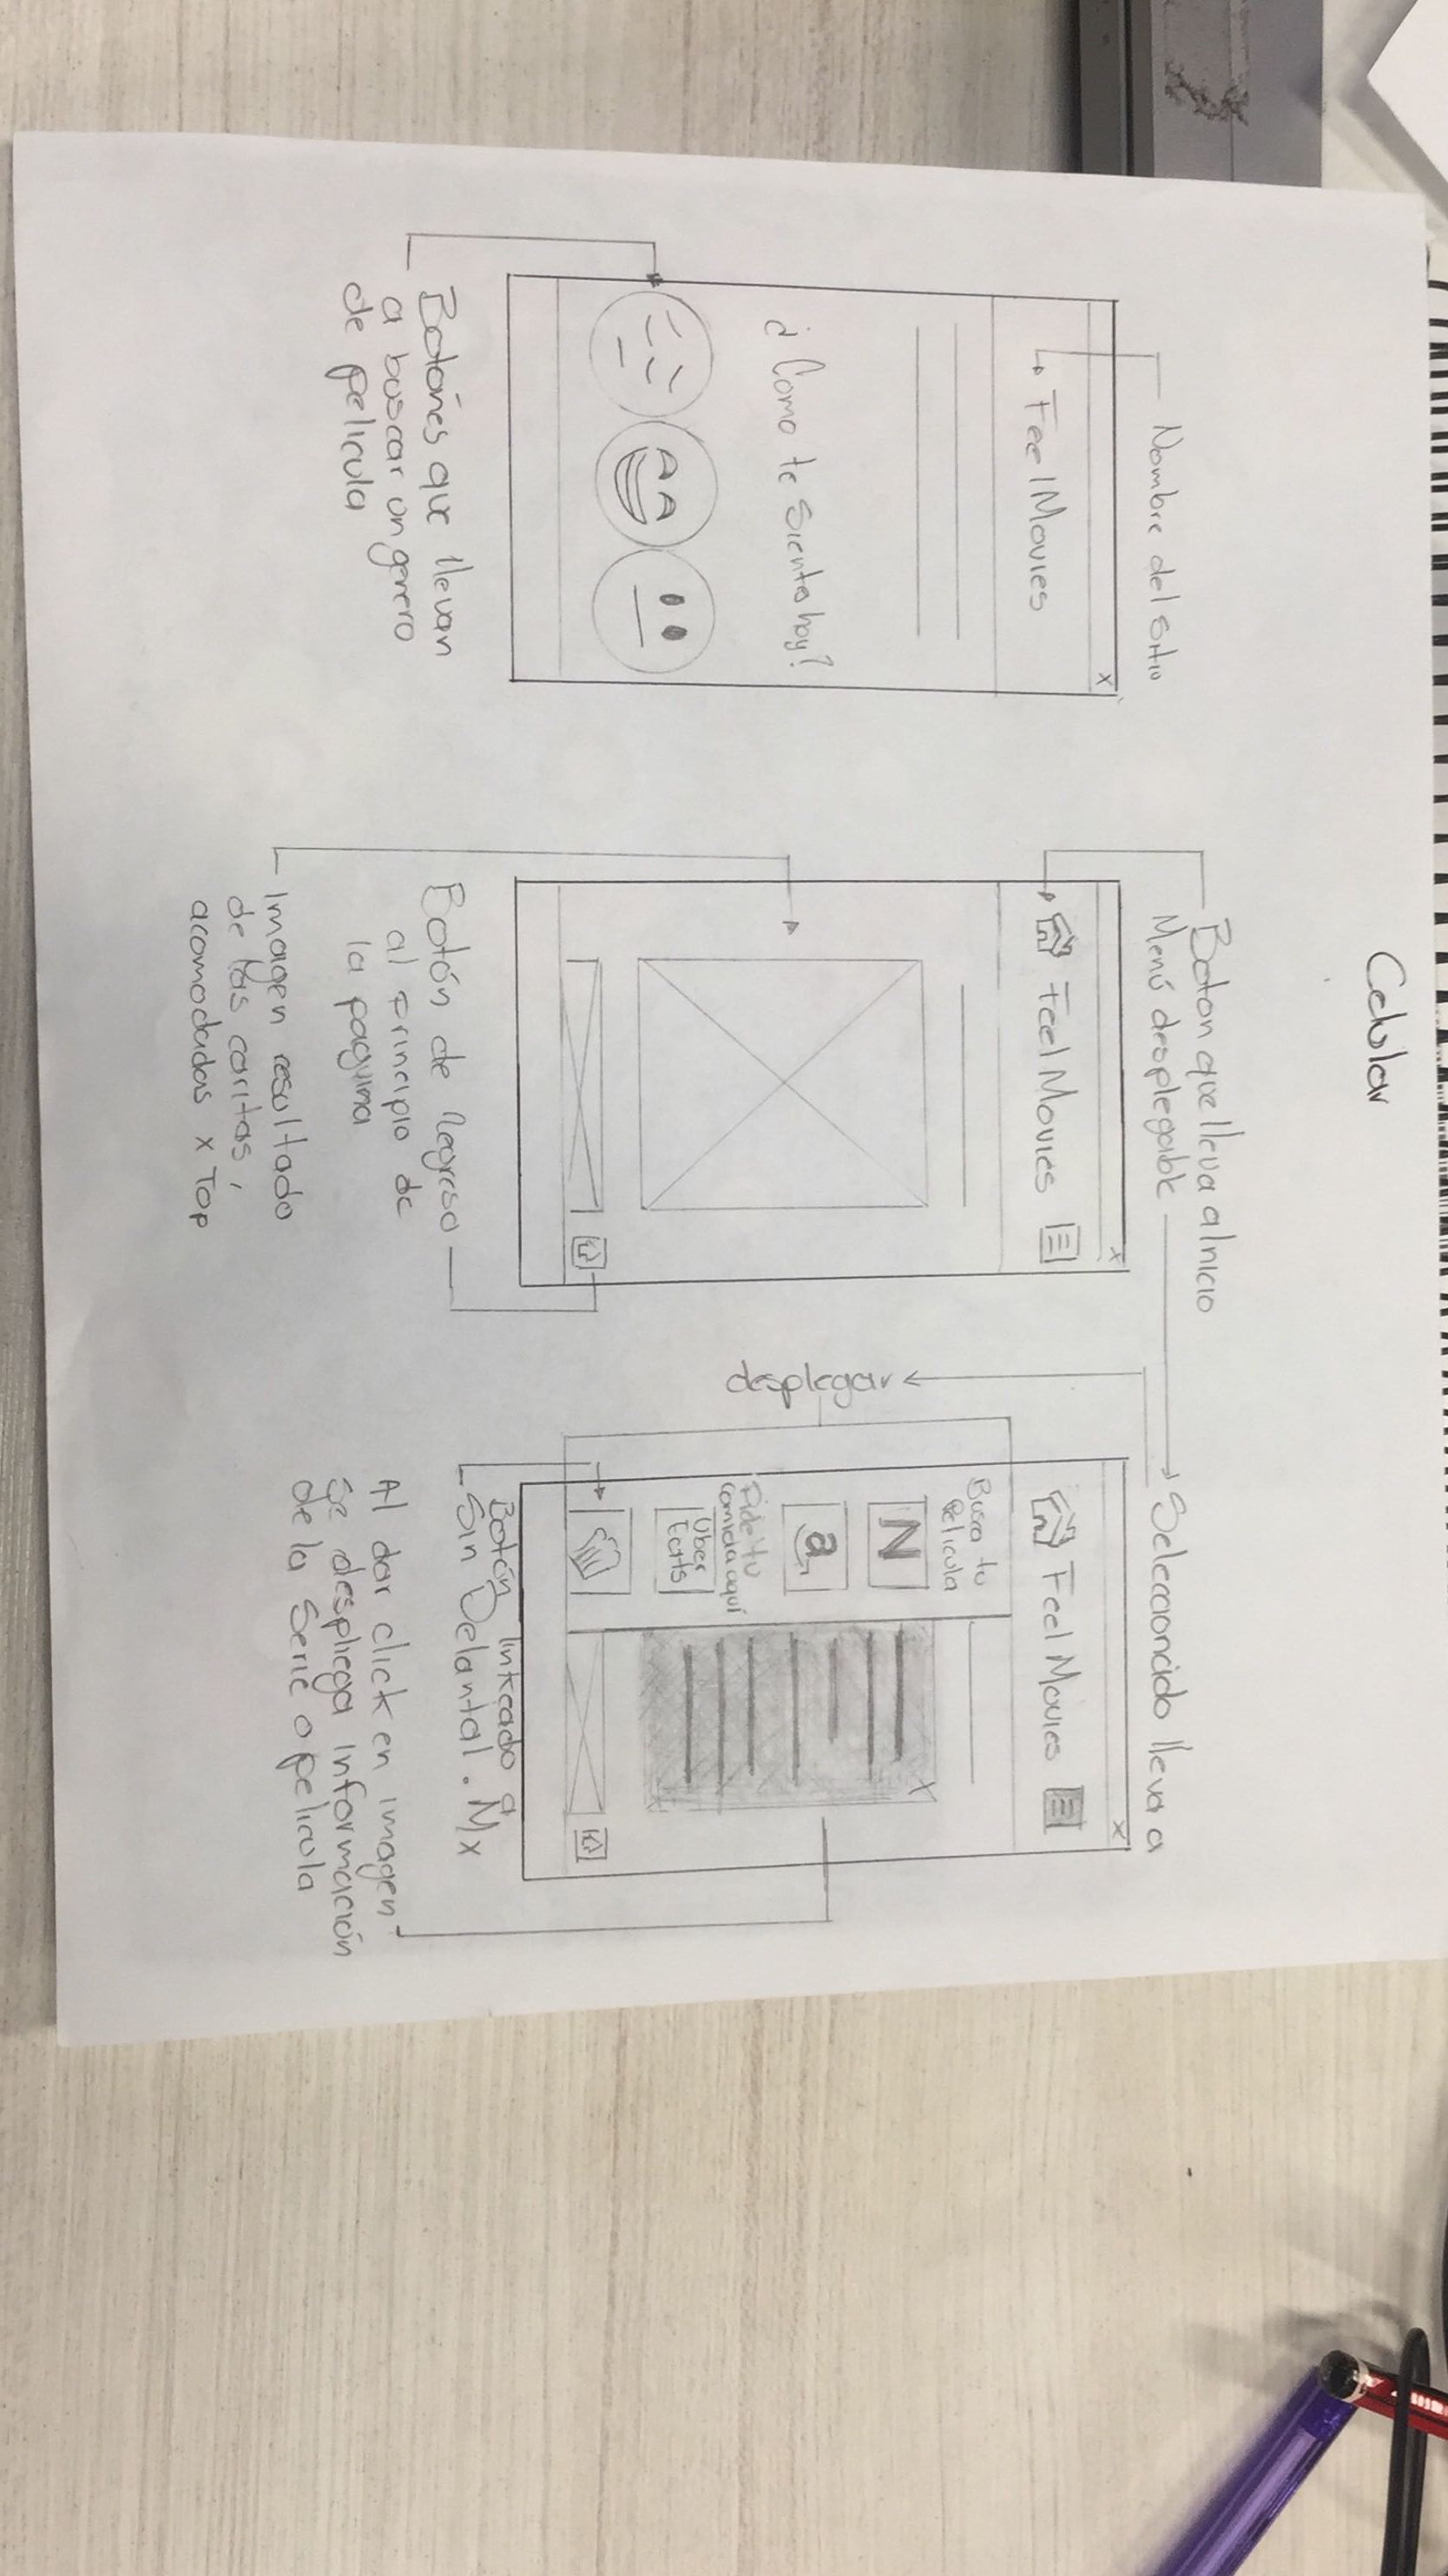 Celular
Nombre del sitio
x
FeelMovies
¿Como te sientes hoy?
Botones que llevan
a buscar un genero
de pelicula
Boton que lleva a Inicio
Menú desplegable
x
Feel Movies
Botón de regreso
al principio de
la paguina
Imagen resultado
de las caritas,
acomodadas x Top
Seleccionado lleva a
desplegar
x
Feel Movies
Busca tu
Pelicula
N
a
Pide tu
comida aquí
Uber
Eats
Botón linkeado a
Sin Delantal.Mx
Al dar click en imagen
se despliega información
de la Serie o pelicula